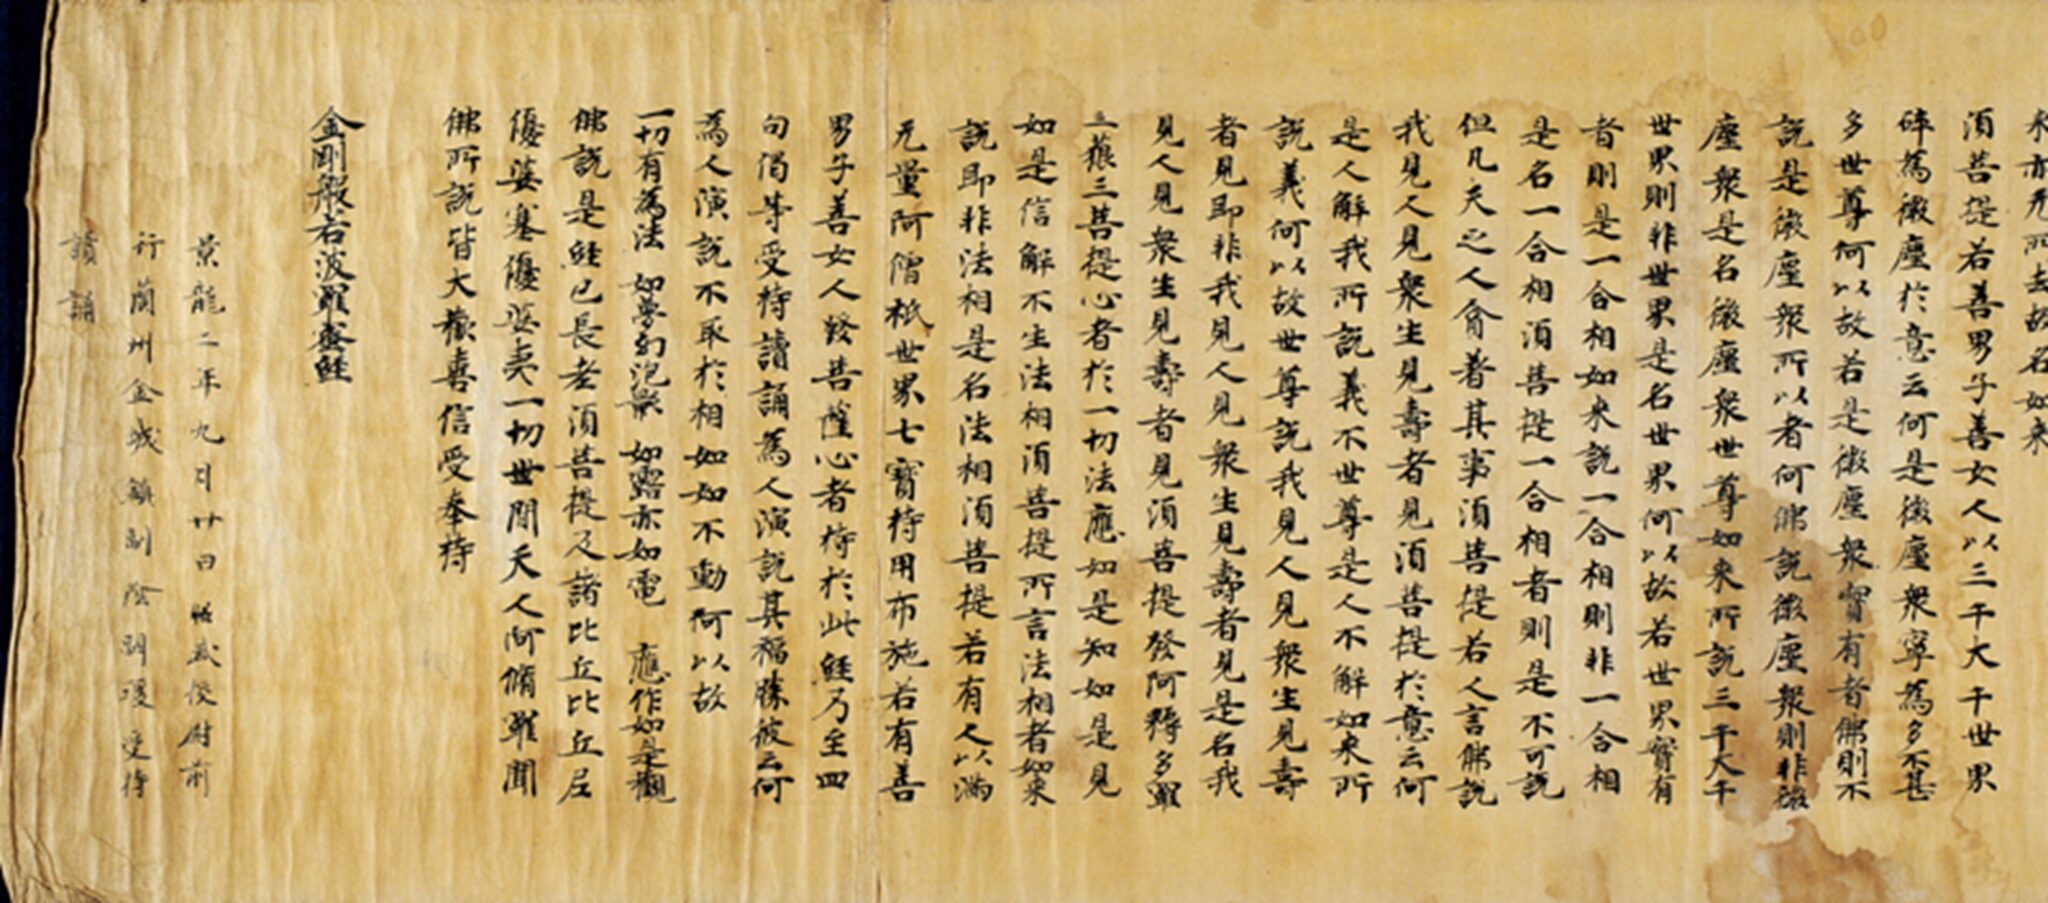 来亦无所去故名如来
湏菩提若善男子善女人以三千大千世界
碎為微塵於意云何是微塵衆寧為多不甚
多世尊何以故若是微塵衆實有者佛則不
說是微塵衆所以者何佛說微塵衆則非微
塵衆是名微塵衆世尊如来所說三千大千
世界則非世界是名世界何以故若世界實有
者則是一合相如来說一合相則非一合相
是名一合相湏菩提一合相者則是不可說
但凡夫之人貪著其事湏菩提若人言佛說
我見人見衆生見壽者見湏菩提於意云何
是人解我所說義不世尊是人不解如来所
說義何以故世尊說我見人見衆生見壽
者見即非我見人見衆生見壽者見是名我
見人見衆生見壽者見湏菩提發阿耨多羅
三藐三菩提心者於一切法應如是知如是見
如是信解不生法相湏菩提所言法相者如来
說即非法相是名法相湏菩提若有人以滿
无量阿僧祇世界七寳持用布施若有善
男子善女人發菩薩心者持於此經乃至四
句偈等受持讀誦為人演說其福勝彼云何
為人演說不取於相如如不動何以故
一切有為法 如夢幻泡影 如露亦如電 應作如是觀
佛說是經已長老湏菩提及諸比丘比丘尼
優婆塞優婆夷一切世間天人阿脩羅聞
佛所說皆大歡喜信受奉持
金剛般若波羅蜜經
景龍二年九月廿日昭武校尉前
行蘭州金城鎮副陰嗣瑗受持
讀誦